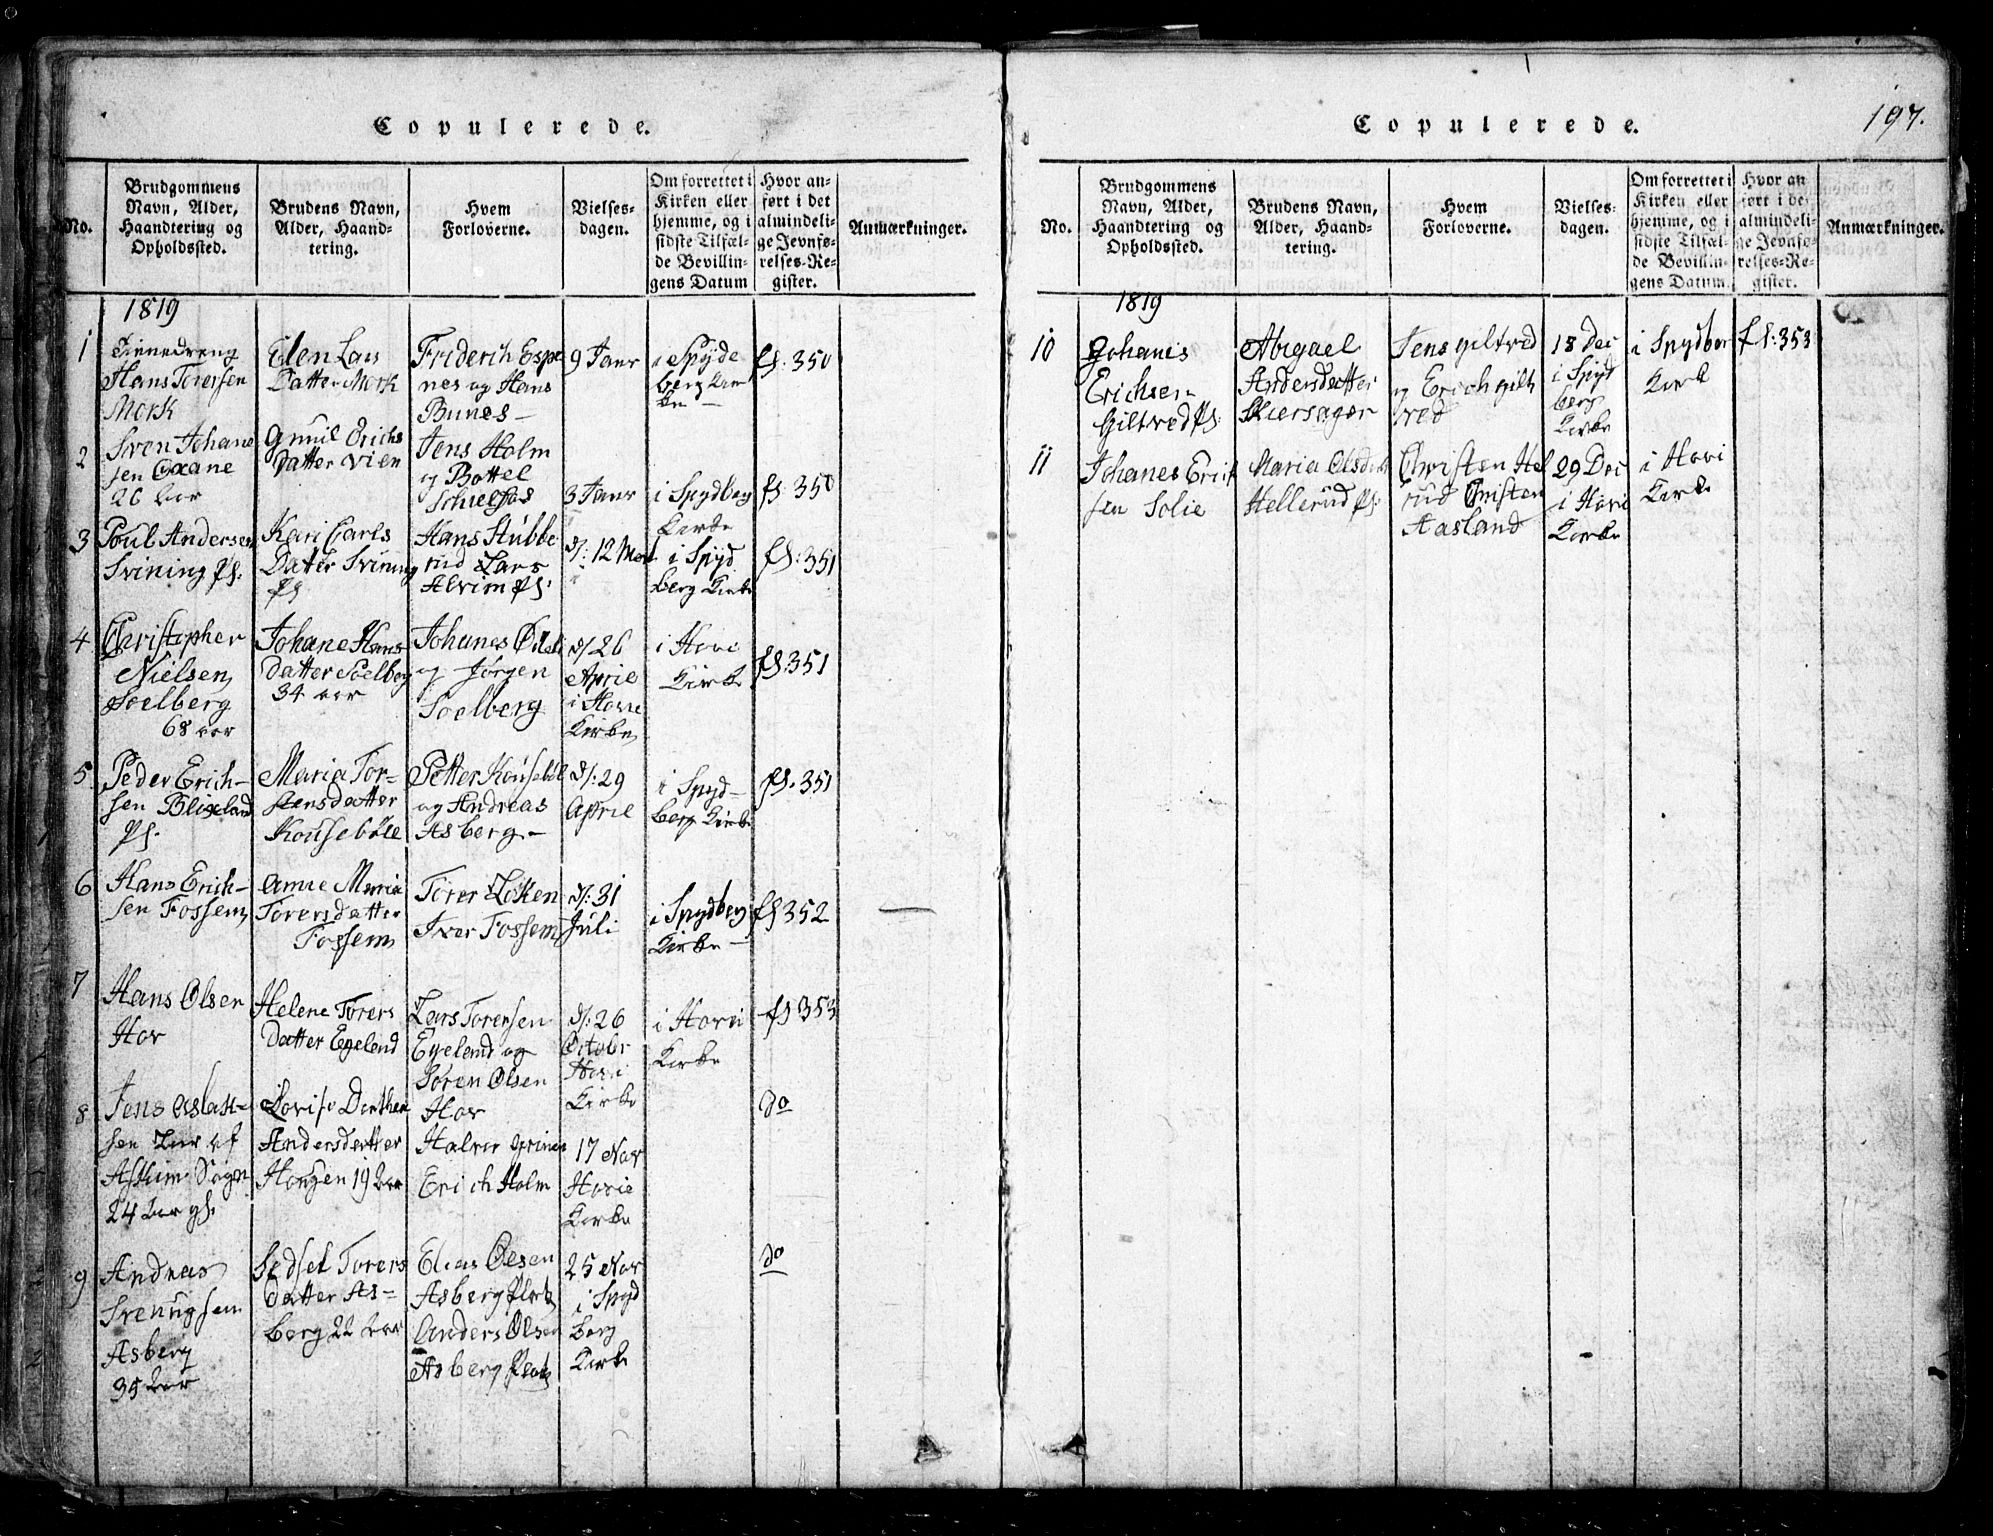 Copulerede.
No.
Brudgommens
Navn, Alder,
Haandtering og
Opholdssted.
Brudens Navn,
Alder, Haand-
tering.
Hvem
Forloverne.
Vielses-
dagen.
Om forrettet i
Kirken eller
hjemme, og i
sidste Tilfæl-
de Bevillin-
gens Datum
Hvor an-
ført i det
almindeli-
ge Jevnfø-
relses-Re-
gister.
Anmærkninger.
1819
1
Tienedreng
Hans Torersen
Mork
Elen Lars
Datter Mork
Friderich Espe
nes og Hans
Bunes-
9 Janr
i Spyde
berg Kir
ke -
fS. 350
2
Sven Johane
sen Oxane
26 aar
Gunil Erichs
Datter Vien
Jens Holm
og Bottel
Schielfos
3 Janr
i Spydberg
Kirke
fS. 350
3
Poul Andersen
Svining Ps:
Kari Carls
Datter Svining
Ps
Hans Stubbe
rud Lars
Alvim Ps:
d: 12 Mart
i Spyd
berg Kirke
fS: 351
4
Christopher
Nielsen
Soelberg
68 aar
Johane Hans
datter Soelberg
34 aar
Johanes
og Jørgen
Soelberg
d: 26
Aprie
i Hovie
Kirke
i Hovi
Kirke
fS: 351
5
Peder Erich-
sen Blixeland
Ps.
Maria Tor-
stensdatter
Kousebøle
Petter Kousebøl
og Andreas
Asberg-
d: 29
Aprie
i Spyd-
berg Kirke
fS. 351
6
Hans Erich-
sen Fossem
Anne Maria
Torersdatter
Fossem
Torer Løken
Iver Fossem
d: 31
Juli
i Spydberg
Kirke -
fS 352
7
Hans Olsen
Hov
Helene Torers
Datter Egeland
Lars Torersen
Egeland og
Søren Olsen
Hov
d: 26
Octobr
Hovi
Kirke
i Hovi
Kirke
fS 353
8
Jens Aslak-
sen Lur af
Askim Sogn
24 aar gl.
Lovise Dorthea
Andersdatter
Hougen 19 aar
Halvor Grinen
Erich Holm
17 Nov
Hovie
Kirke
do
9
Andreas
Svenugsen
Asberg
35 aar
Sedsel Torers
datter As-
berg 22 aar
Elias Olsen
Asberg Plads
Anders Olsen
Asberg Plads
25 Nov
i Spyd
berg
Kirke
do
Copulerede.
197.
No.
Brudgommens
Navn, Alder,
Haandtering og
Opholdssted.
Brudens Navn,
Alder, Haand-
tering.
Hvem
Forloverne.
Vielses-
dagen.
Om forrettet i
Kirken eller
hjemme, og i
sidste Tilfæl-
de Bevillin-
gens Datum.
Hvor an
ført i de
almindeli-
ge Jevnfø-
relses-Re-
gister.
Anmærkninger.
1819
10
Johanis
Erichsen
Giltved Ps:
Abigael
Andersdatter
Skiersager
Jens Giltved
og Erich Gilt
ved
18 Dec
i Spyd
berg
Kirke
i Spydber
Kirk
fS: 353
11
Johanes Erich
sen Solie
Maria Olsdatt
Hellerud Ps:
Christen Hel
rud Christen
Aasland
29 Dec
i Hovi
Kirke
i Hovi
Kirke